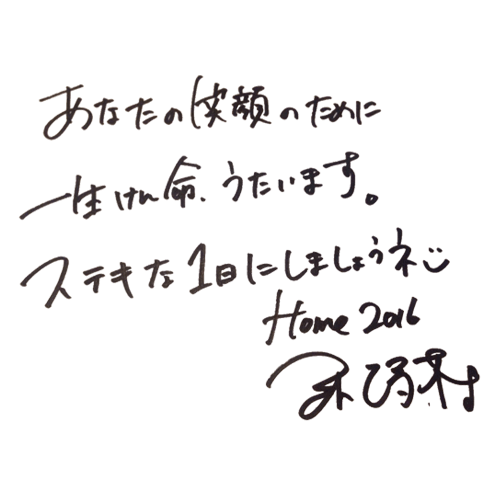 あなたの笑顔のために
一生けん命、うたいます。
ステキな1日にしましょうネ
Home 2016